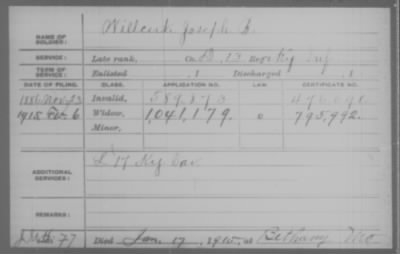 NAME OF SOLDIER: Joseph
SERVICE: Late rank, Co. D, 13 Reg't Ky Inf
TERM OF SERVICE: Enlisted , 1 Discharged , 1
DATE OF FILING. CLASS. APPLICATION NO. LAW. CERTIFICATE NO.
1886 Nov. 23 Invalid, 589,873
1915 Feb 6 Widow, 1,041,179 795,992.
Minor,
ADDITIONAL SERVICES: L 17 Ky Cav
REMARKS:
Died Jan. 17, 1915, at Bethany Mo